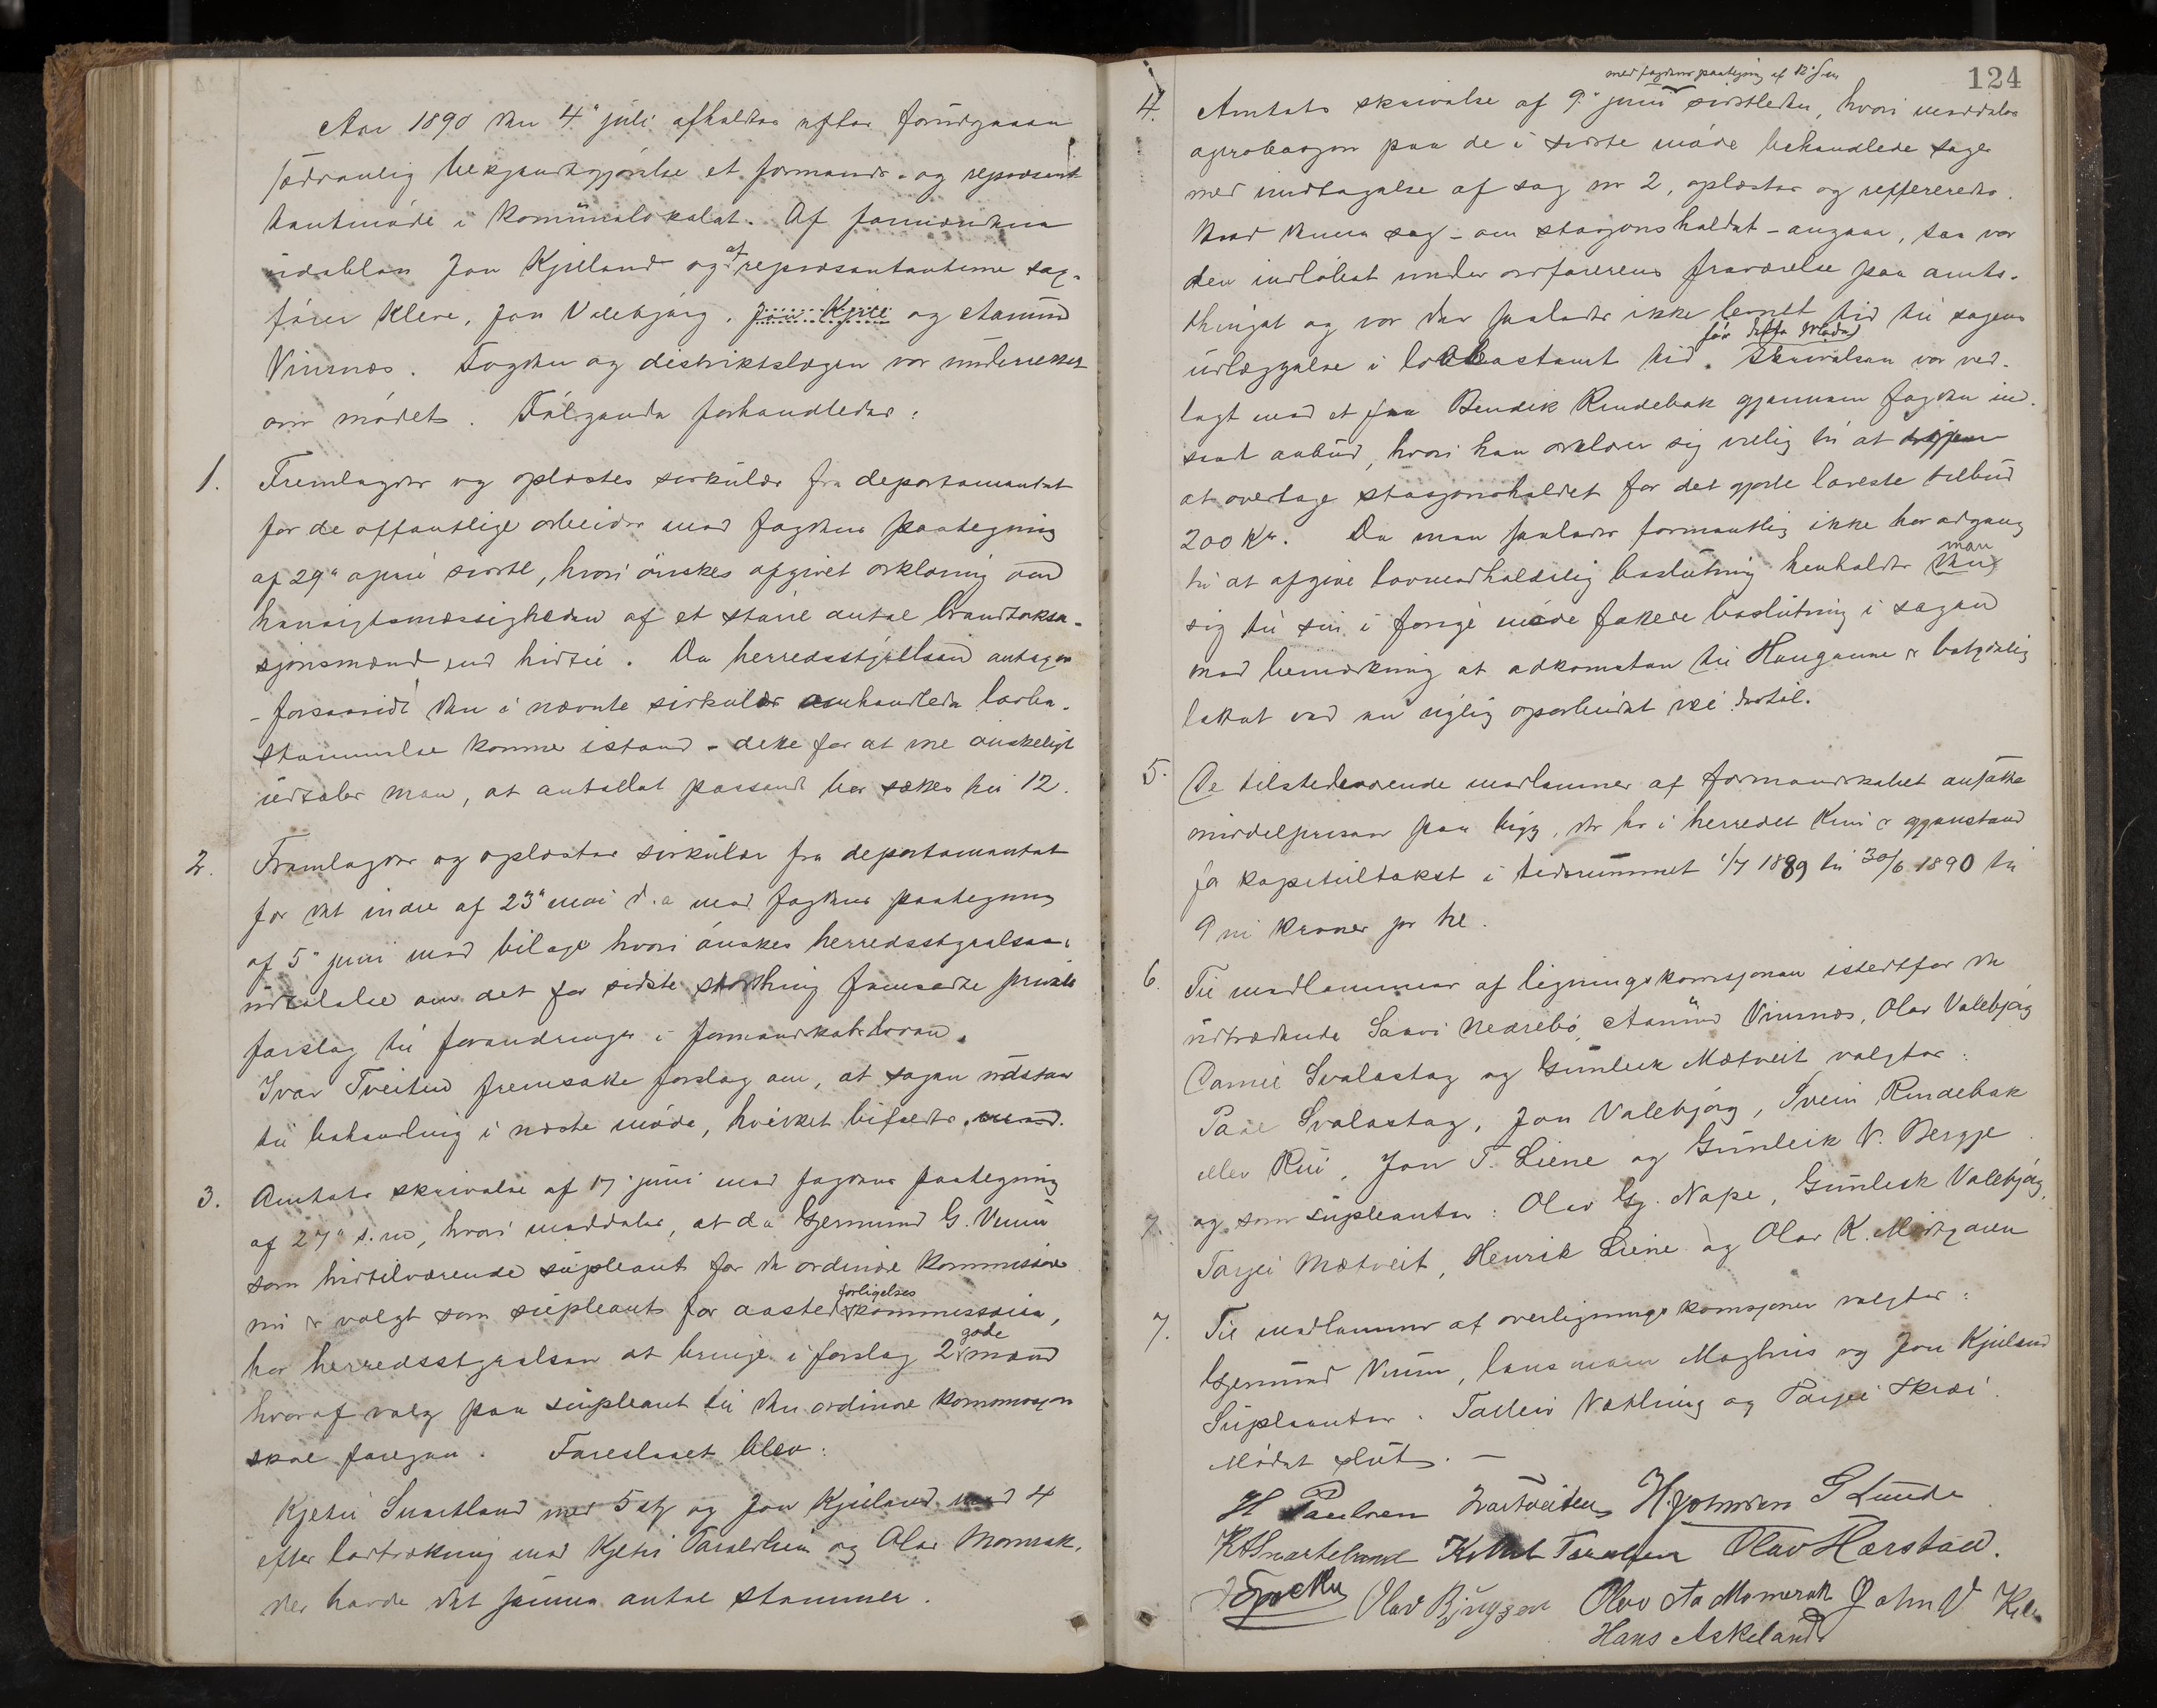 Aar 1890 den 4de juli afholdtes efter forudgaaen
sædvanlig bekjendtgjørelse et formands- og repræsent
tantmøde i komunelokalet. Af formændene
udeblev Jon Kjiland og af repræsentanterne sag-
fører Kleve, Jon Valebjørg, Jon Kjile og Aamund
Vinsnes. Fogden og distriktslægen var underrettet
om mødet. Følgende forhandledes:
1. Fremlagdes og oplæstes sirkulær fra departementet
for de offentlige arbeider med fogdens paategning
af 29de april sidstl, hvori ønskes afgivet erklæring om
hensigtsmæssigheden af et større antal brandtaksa-
sjonsmænd end hidtil. Da herredsstyrelsen antager
- forsaavidt den i nævnte sirkulær omhandlede lovbe-
stemmelse kommer istand - dette for at være ønskeligt
udtaler man, at antallet passende bør sættes til 12.
2. Fremlagdes og oplæstes sirkulær fra departementet
for det indre af 23de mai d.a med fogdens paategning
af 5te juni med bilage hvori ønskes herredsstyrelsens
udtalelse om det for sidste storthing fremsatte private
forslag til forandringer i formandskabsloven.
Ivar Tveiten fremsatte forslag om, at sagen udstaar
til behandling i næste møde, hvilket bifaldtes.
3. Amtets skrivelse af 17 juni med fogdens paategning
af 27de s.m, hvori meddeles, at da Gjermund G. Vinin
som hidtilværende supleant for de ordinære kommissioner
nu er valgt som supleant for aasteds forligelses kommissionen,
har herredsstyrelsen at bringe i forslag 2 gode mænd
hvoraf valg paa supleant til den ordinære kommission
skal foregaa. Foreslaaet blev:
Kjetil Svartland med 5 st og Jon Kjiland med 4
efter lodtrækning med Kjetil Taraldlien og Olav Momrak,
der havde det samme antal stemmer.
124
med fogdens paategning af 12 s.m
4. Amtets skrivelse af 9de juni sidstleden, hvori meddeles
aprobasjon paa de i sidste møde behandlede sager
med undtagelse af sag nr 2, oplæstes og reffereredes.
Hvad denne sag - om stasjonsholdet - angaar, saa var
den indløbet under ordførerens fraværelse paa amts-
thinget og var der saaledes ikke levnet tid til sagens
udlæggelse i lovbestemt tid før dette møde. Skrivelsen var ved-
lagt med et fra Bendik Rundebak gjennem fogden ind-
sendt anbud, hvori han erklærer sig villig til at
at overtage stasjonsholdet for det gjorte laveste tilbud
200 Kr. Da man saaledes formentlig ikke har adgang
til at afgive lovmedholdelig beslutning henholdes man
sig til sin i forrige møde fattede beslutning i sagen
med bemærkning at adkomsten til Haugane er betydelig
lettet ved en nylig oparbeidet vei dertil.
5. De tilstedeværende medlemmer af formandskabet ansatte
middelprisen paa bygg, der her i herredet kun er gjenstand
for kapitultakst i tidsrummet 1/7 1889 til 30/6 1890 til
9 ni kroner pr hl.
6. Til medlemmer af ligningskomisjonen istedetfor de
udtrædende Saavi Nedrebø, Aamund Vinsnes, Olav Valebjørg
Daniel Svalastog og Gunleik Mætveit valgtes:
Paal Svalastog, Jon Valebjørg, Svein Rundebak
eller Rui, Jon T. Liene og Gunleik V. Bergje
7. og som supleanter: Olav Gj. Nape, Gunleik Valebjørg,
Tarjei Mætveit, Henrik Liene og Olav K. Midtgaren
7. Til medlemmer af overligningskomisjonen valgtes:
Gjermund Vinin, lensmann Moghus og Jon Kjiland
Supleanter. Talleiv Vætling og Tarjei Skræi.
Mødet slut. —
H Paulsen Ivar Tveiten H. Johnsen G Lunde
K H Svartelund Kittil Taralsen Olav Harstad.
Olav Bjugsen Olav Aa Momerak John V Kile
Hans Askeland